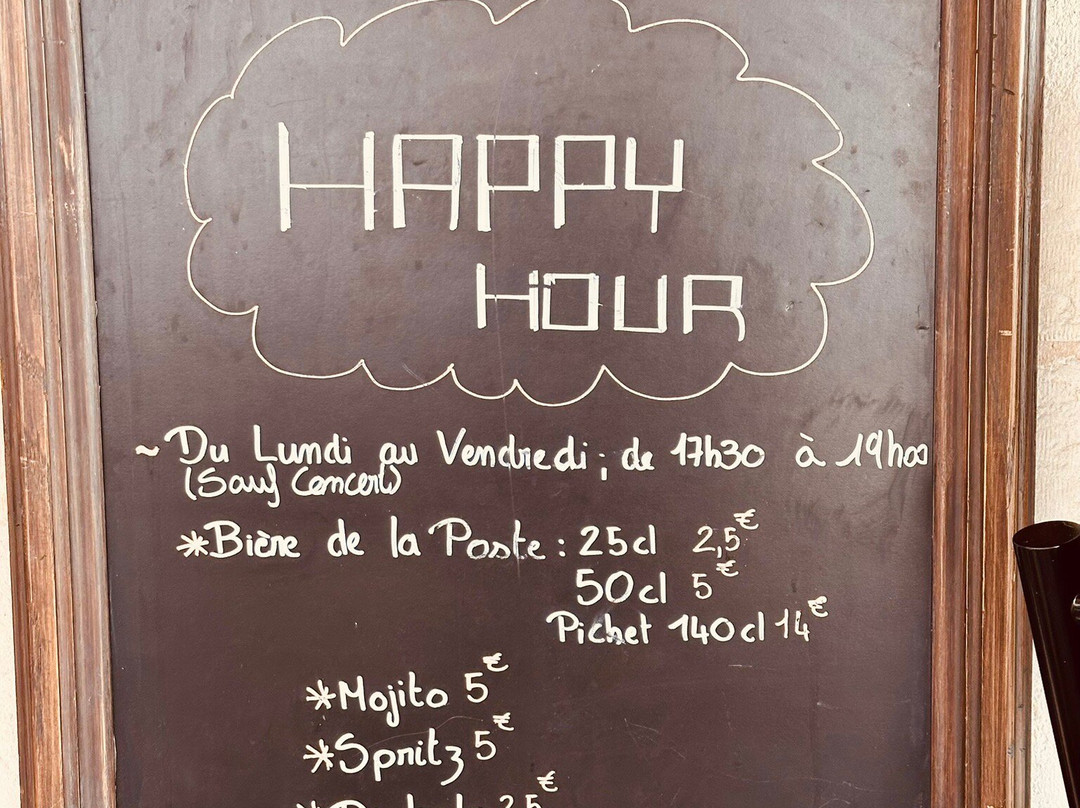 HAPPY
HOUR
~ Du Lundi au Vendredi ; de 17h30 à 19h00
(Sauf Concert)
*Bière de la Poste : 25cl 2,5€
50cl 5€
Pichet 140cl 14€
*Mojito 5€
*Spritz 5€